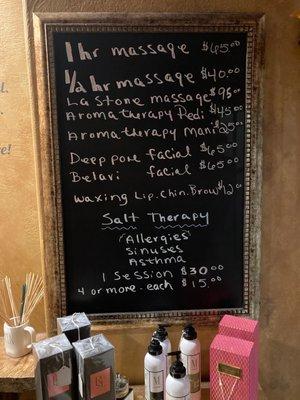 1 hr massage $65.00
1/2 hr massage $40.00
La Stone massage $95.00
Aromatherapy Pedi $45.00
Aromatherapy mani $25.00
Deep pore facial $65.00
Belavi facial $65.00
Waxing Lip. Chin. Brow $12.00
Salt Therapy
"Allergies"
Sinuses
Asthma
1 Session $30.00
4 or more - each $15.00
e!
M
M